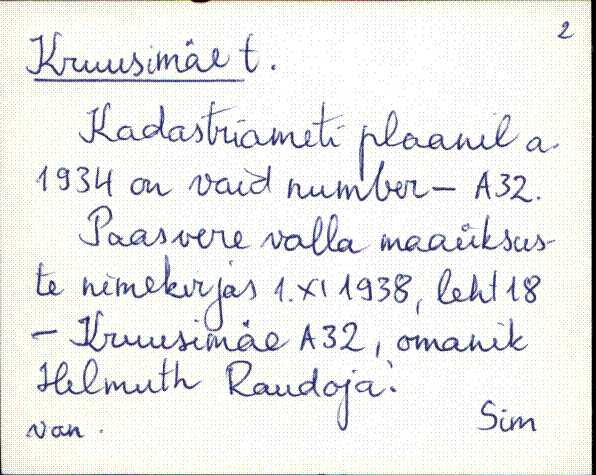 2
Kruusimäe t.
Kadastriameti plaanil a.
1934 on vaid number - A32.
Paasvere valla maaüksus-
te nimekirjas 1.XI 1938, leht 18
- Kruusimäe A32, omanik
Helmuth Raudoja.
van. Sim